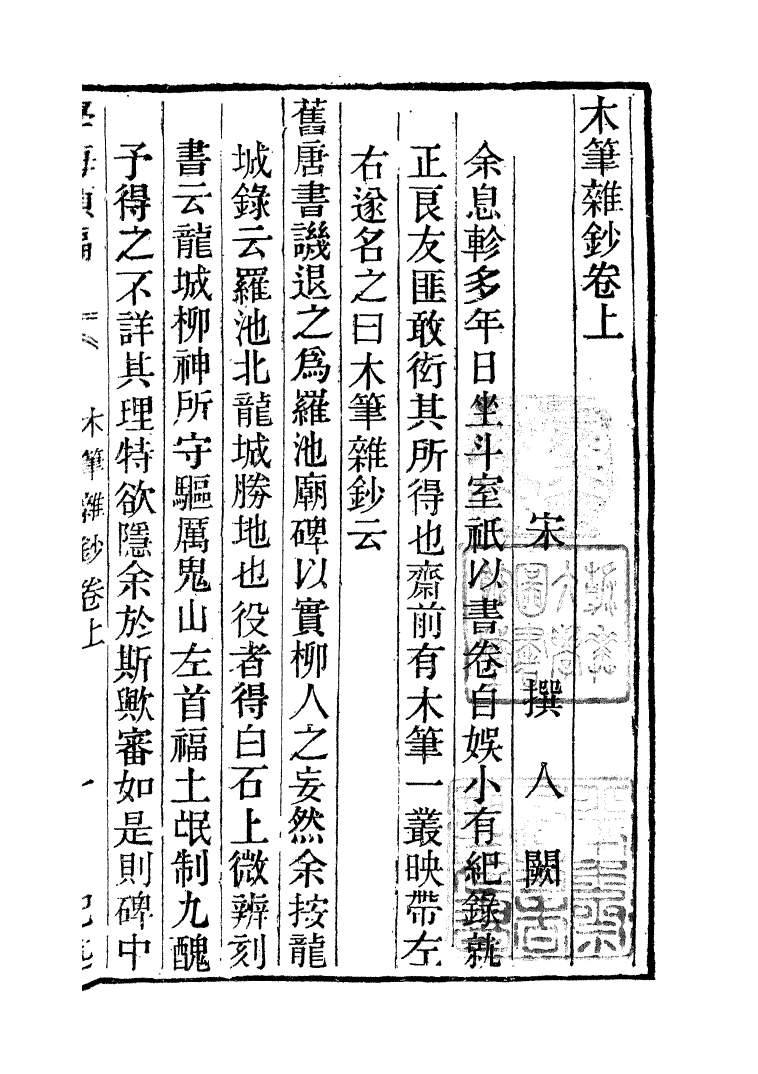 木筆雜鈔卷上
宋　撰人闕
余息軫多年日坐斗室祇以書卷自娛小有紀錄就
正良友匪敢衒其所得也齋前有木筆一叢映帶左
右遂名之曰木筆雜鈔云
舊唐書譏退之爲羅池廟碑以實柳人之妄然余按龍
城錄云羅池北龍城勝地也役者得白石上微辨刻
書云龍城柳神所守驅厲鬼山左首福土氓制九醜
予得之不詳其理特欲隱余於斯歟審如是則碑中
木筆雜鈔卷上